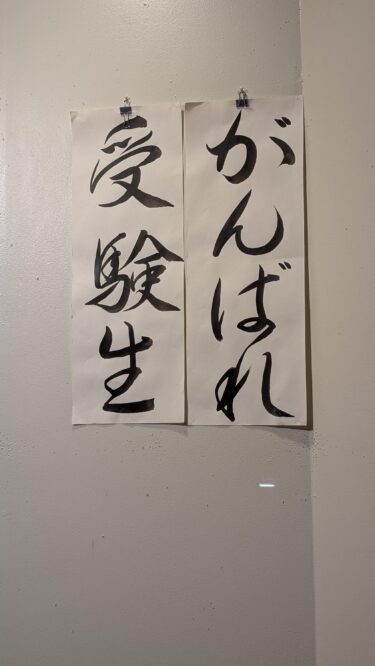 がんばれ
受験生